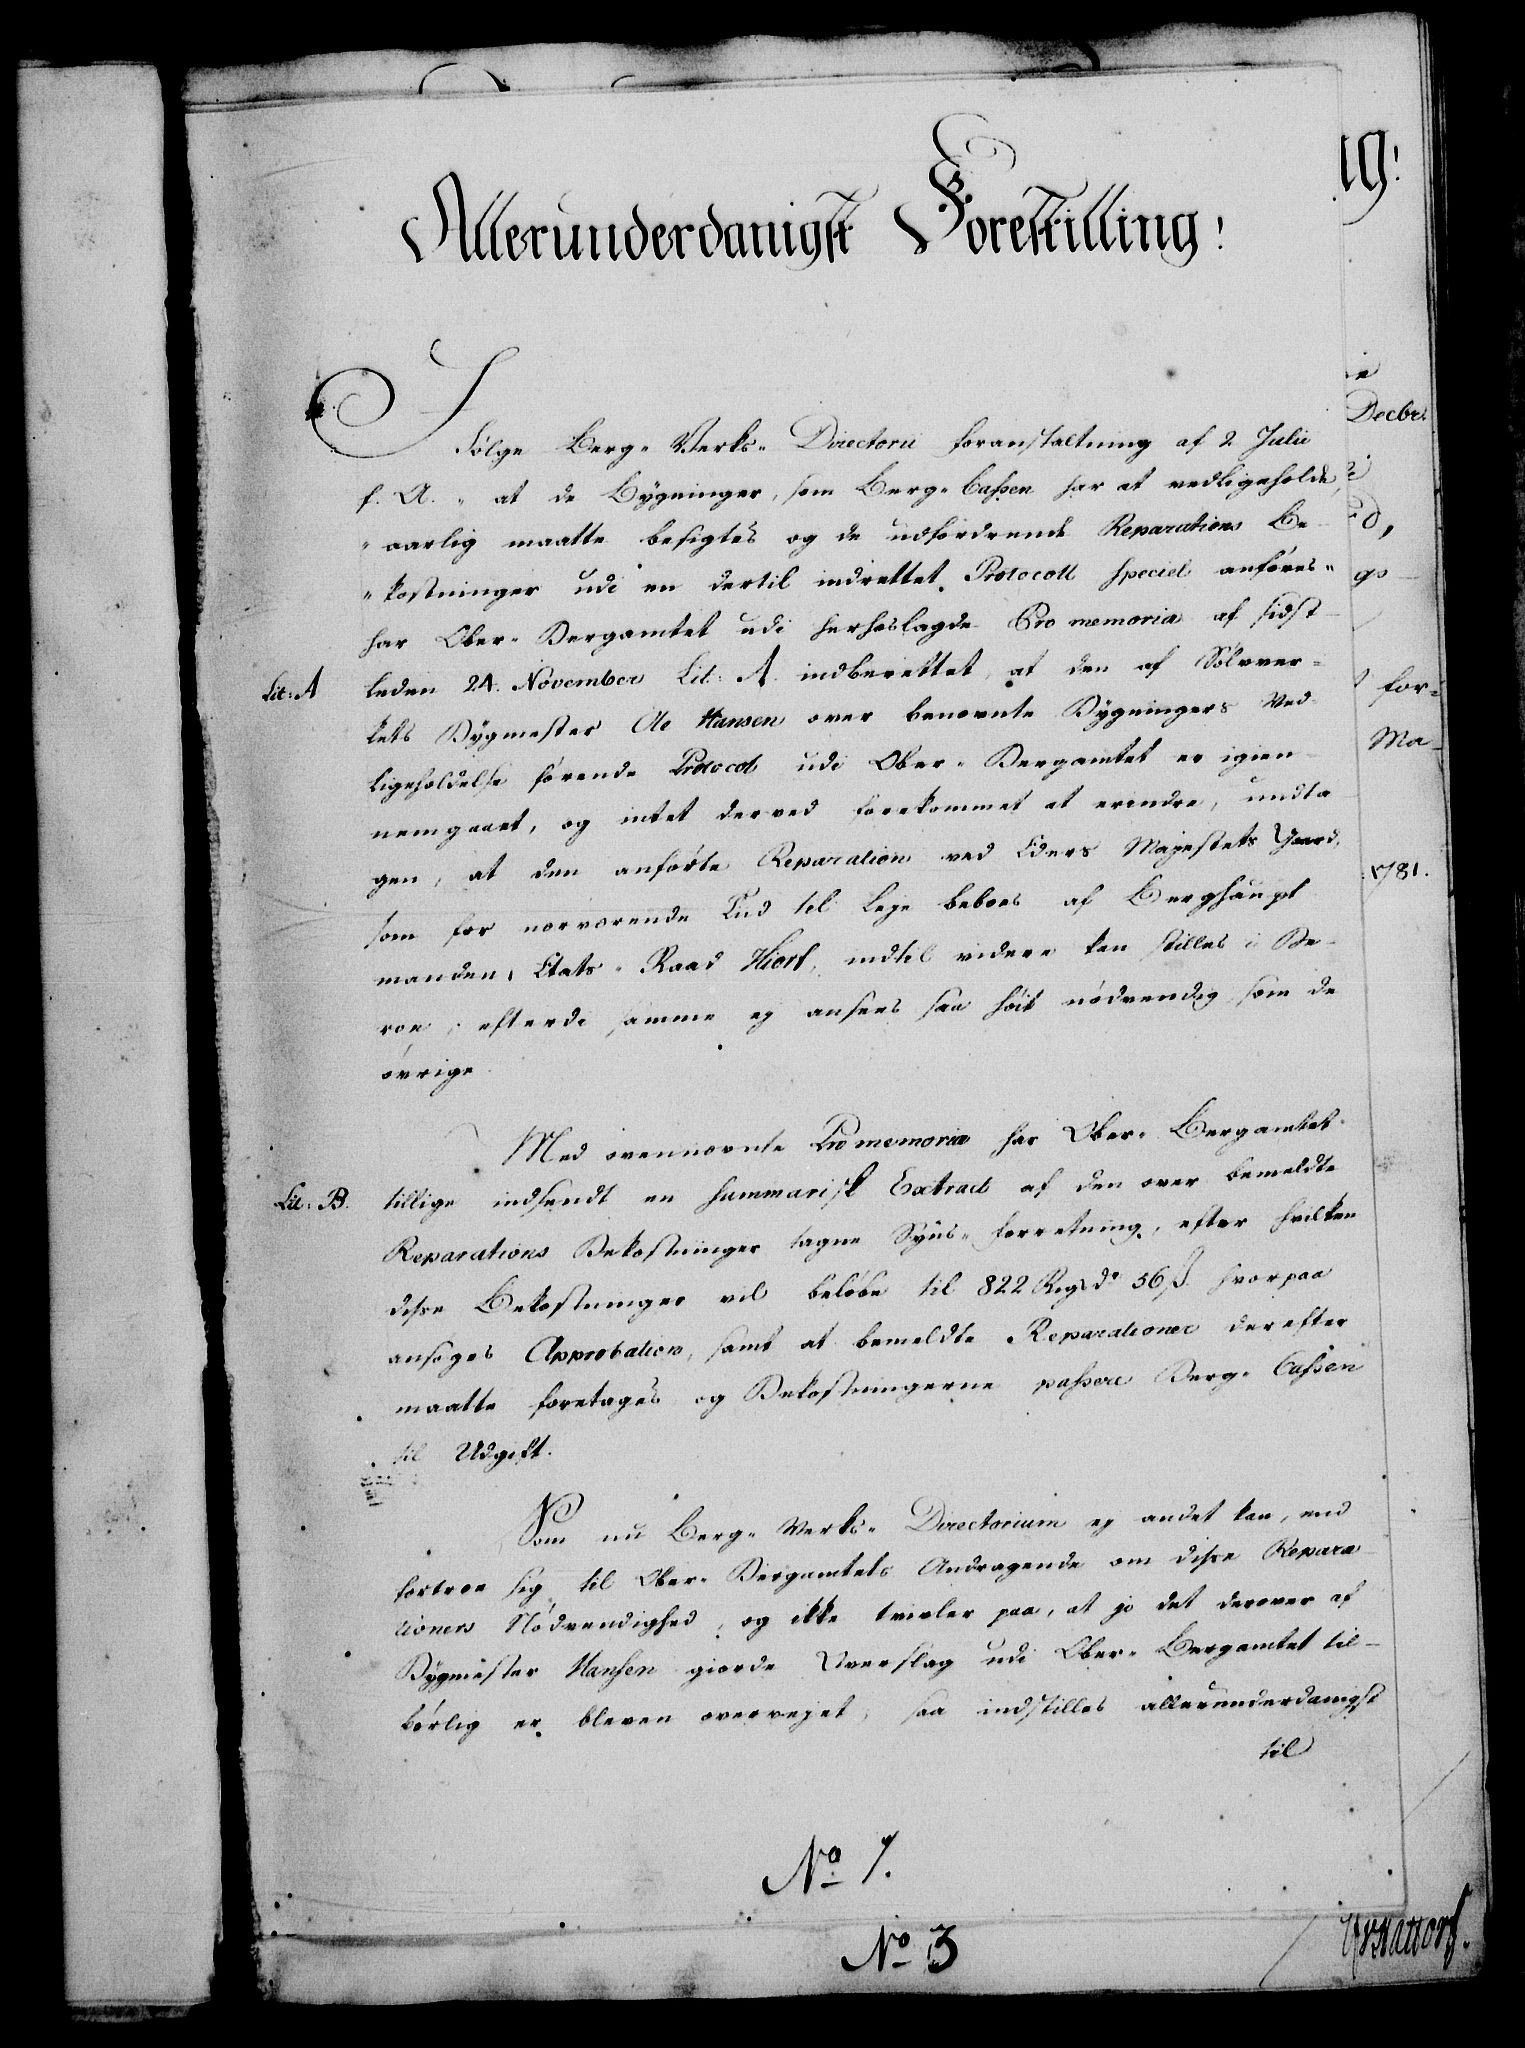 Allerunderdanigst Forestilling!
I
Følge Berg-Verks-Directorii Foranstaltning af 2 Julii
f. A. "at de Bygninger, som Berg-Cassen har at vedligeholde,
"aarlig maatte besigtes og de udfordrende Reparations Be-
"kostninger udi en dertil indrettet Protocoll speciel anføres"
har Ober-Bergamtet udi herhoslagde Pro memoria af sidst-
Lit: A leden 24. November Lit: A. indberettet, at den af Sølvver-
kets Bygmester Ole Hansen over benævnte Bygningers Ved-
ligeholdelse førende Protocol udi Ober-Bergamtet er igien-
nemgaaet, og intet derved forekommet at erindre, undta-
gen, at den anførte Reparation ved Eders Majestets Gaard,
som for nærværende Tiid til Leje beboes af Berghaupt-
manden, Etats-Raad Hiort, indtil videre kan stilles i Be-
roe, efterdi samme ej ansees saa høit nødvendig som de
øvrige.
Med ovennævnte Promemoria har Ober-Bergamtet
Lit: B. tillige indsendt en summarisk Extract af den over bemeldte
Reparations Bekostninger tagne Syns-Forretning, efter hvilken
disse Bekostninger vil beløbe til 822 Rigsdr 56 s. hvorpaa
ansøges Approbation, samt at bemeldte Reparationer derefter
maatte foretages og Bekostningerne passere Berg-Cassen
til Udgift.
Som nu Berg-Verks-Directorium ej andet kan, end
fortroe sig til Ober-Bergamtets Andragende om disse Repara-
tioners Nødvendighed, og ikke tvivler paa, at jo det derover af
Bygmester Hansen giorde Overslag udi Ober-Bergamtet til-
børlig er bleven overvejet, saa indstilles allerunderdanigst
til
No 7.
No 3
19!
Decbr.
d,
gs
for=
Ma-
1781.